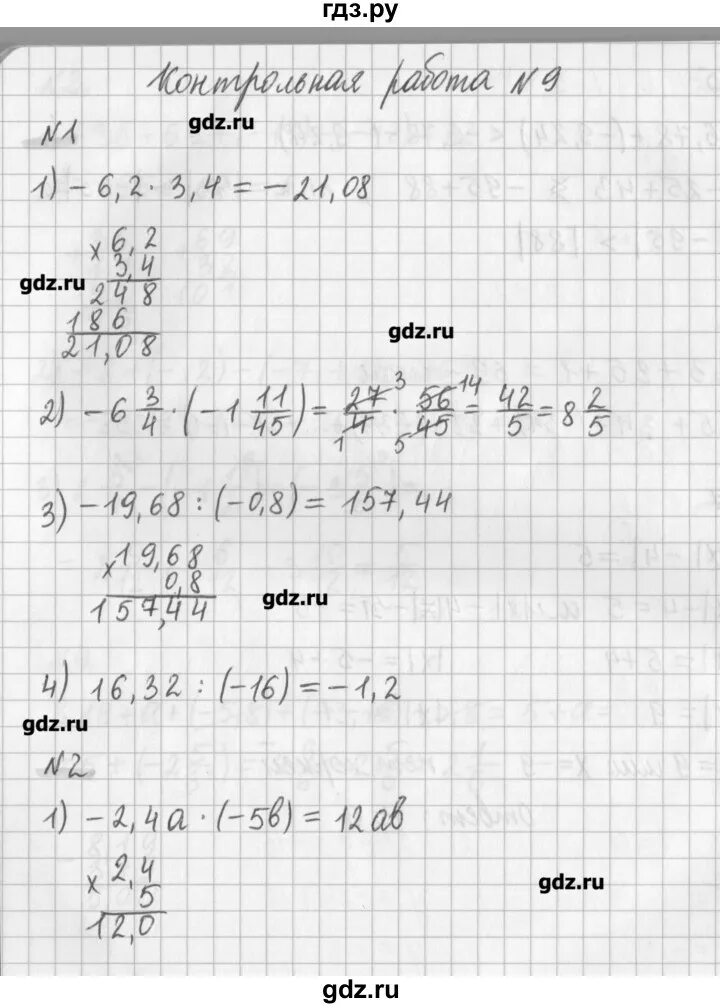 гдз.ру
Контрольная работа №9
gdz.ru
№1
1) - 6,2 · 3,4 = - 21,08
× 6,2
3,4
gdz.ru
248
186
21,08
gdz.ru
2) - 6 3/4 · (- 1 11/45) = 27/4 · 56/45 = 42/5 = 8 2/5
3 14
1 5
3) - 19,68 : (- 0,8) = 157,44
× 19,68
0,8
157,44
gdz.ru
4) 16,32 : (- 16) = - 1,2
gdz.ru
№2
1) - 2,4а · (- 5в) = 12ав
× 2,4
5
12,0
gdz.ru
gdz.ru